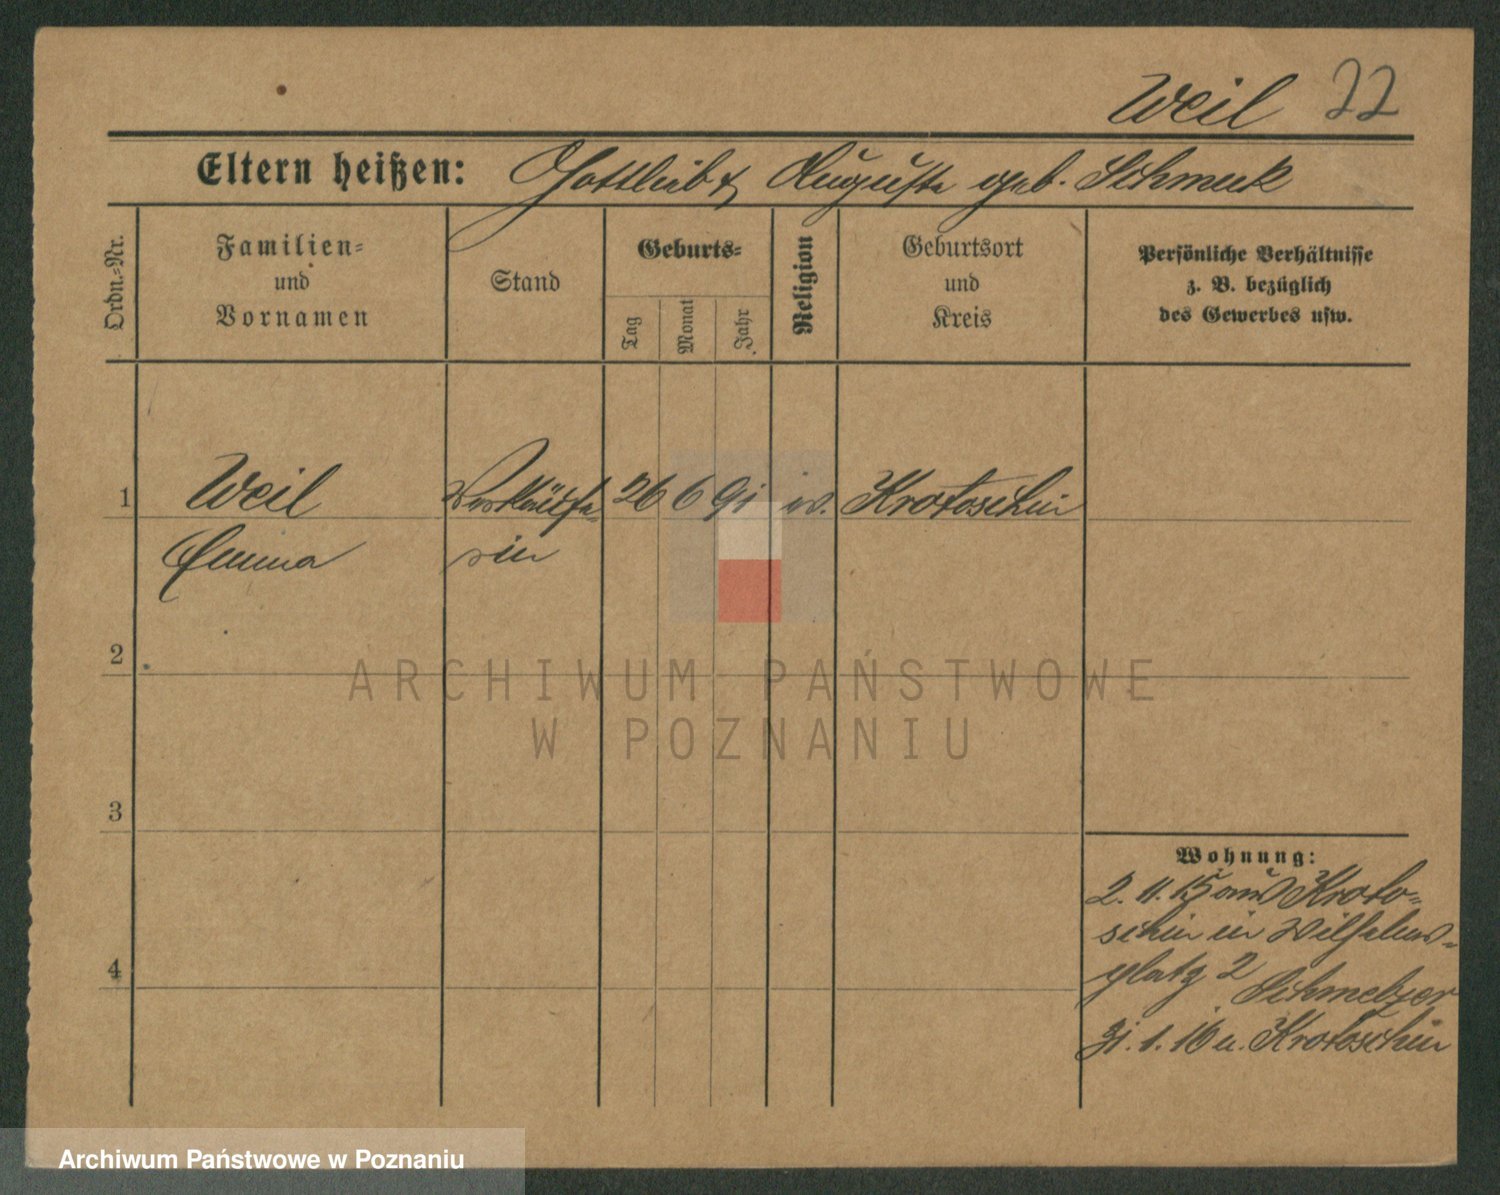 Weil 22
Eltern heißen: Gottlieb & Auguste geb. Schmeck
Ordn.=Nr.
Familien=
und
Vornamen
Stand
Geburts=
Tag
Monat
Jahr
Religion
Geburtsort
und
Kreis
Persönliche Verhältnisse
z. B. bezüglich
des Gewerbes usw.
1 Weil 26 6 91 Krotoschin
Emma rin
2
ARCHIWUM PAŃSTWOWE
W POZNANIU
3
Wohnung:
2. 11. 15 aus Kroto=
schin in Wilhelms=
platz 2 Schmelzer
31. 1. 16 n. Krotoschin
4
Archiwum Państwowe w Poznaniu